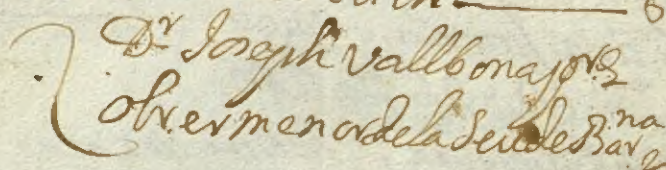 Dr Joseph Vallbona pre
obrer menor de la Seu de Barna